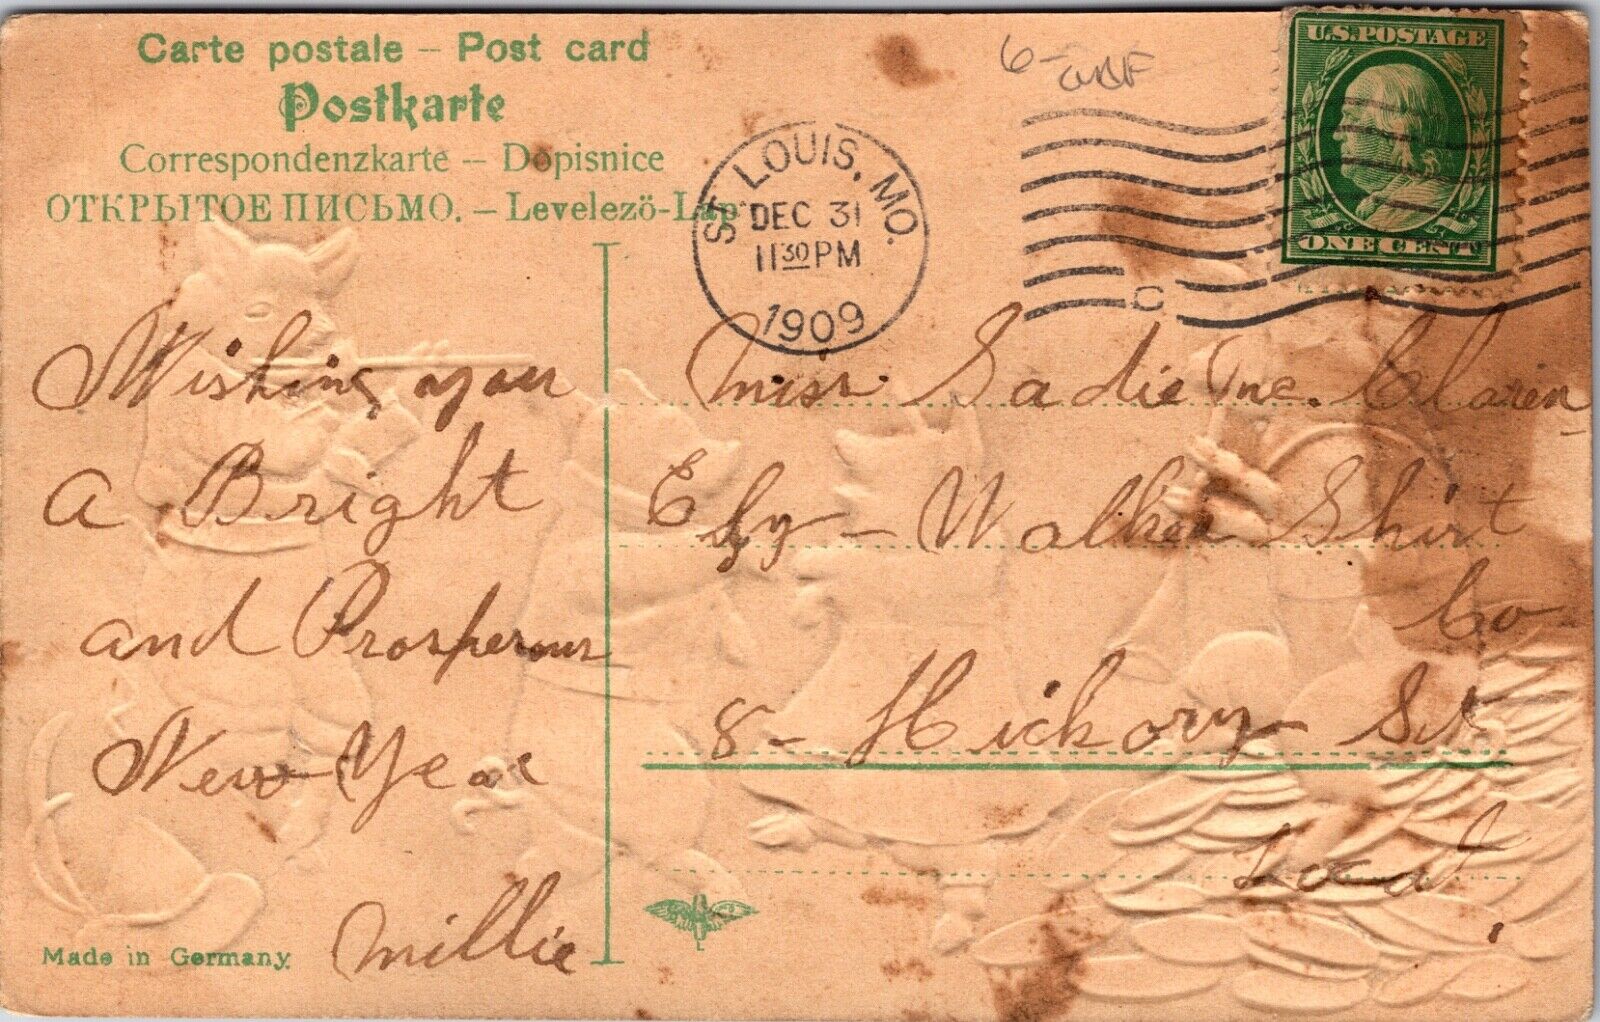 Carte postale – Post card
Postkarte
Correspondenzkarte – Dopisnice
ОТКРЫТОЕ ПИСЬМО. – Levelezö-Lap
6-
ST. LOUIS, MO.
DEC 31
11 30 PM
1909
C
U.S. POSTAGE
ONE CENT
Wishing you
a Bright
and Prosperous
New Year
Millie
Miss Sadie Mc. Claren
Ely – Walker Shirt
Co
8 – Hickory St
Local
Made in Germany